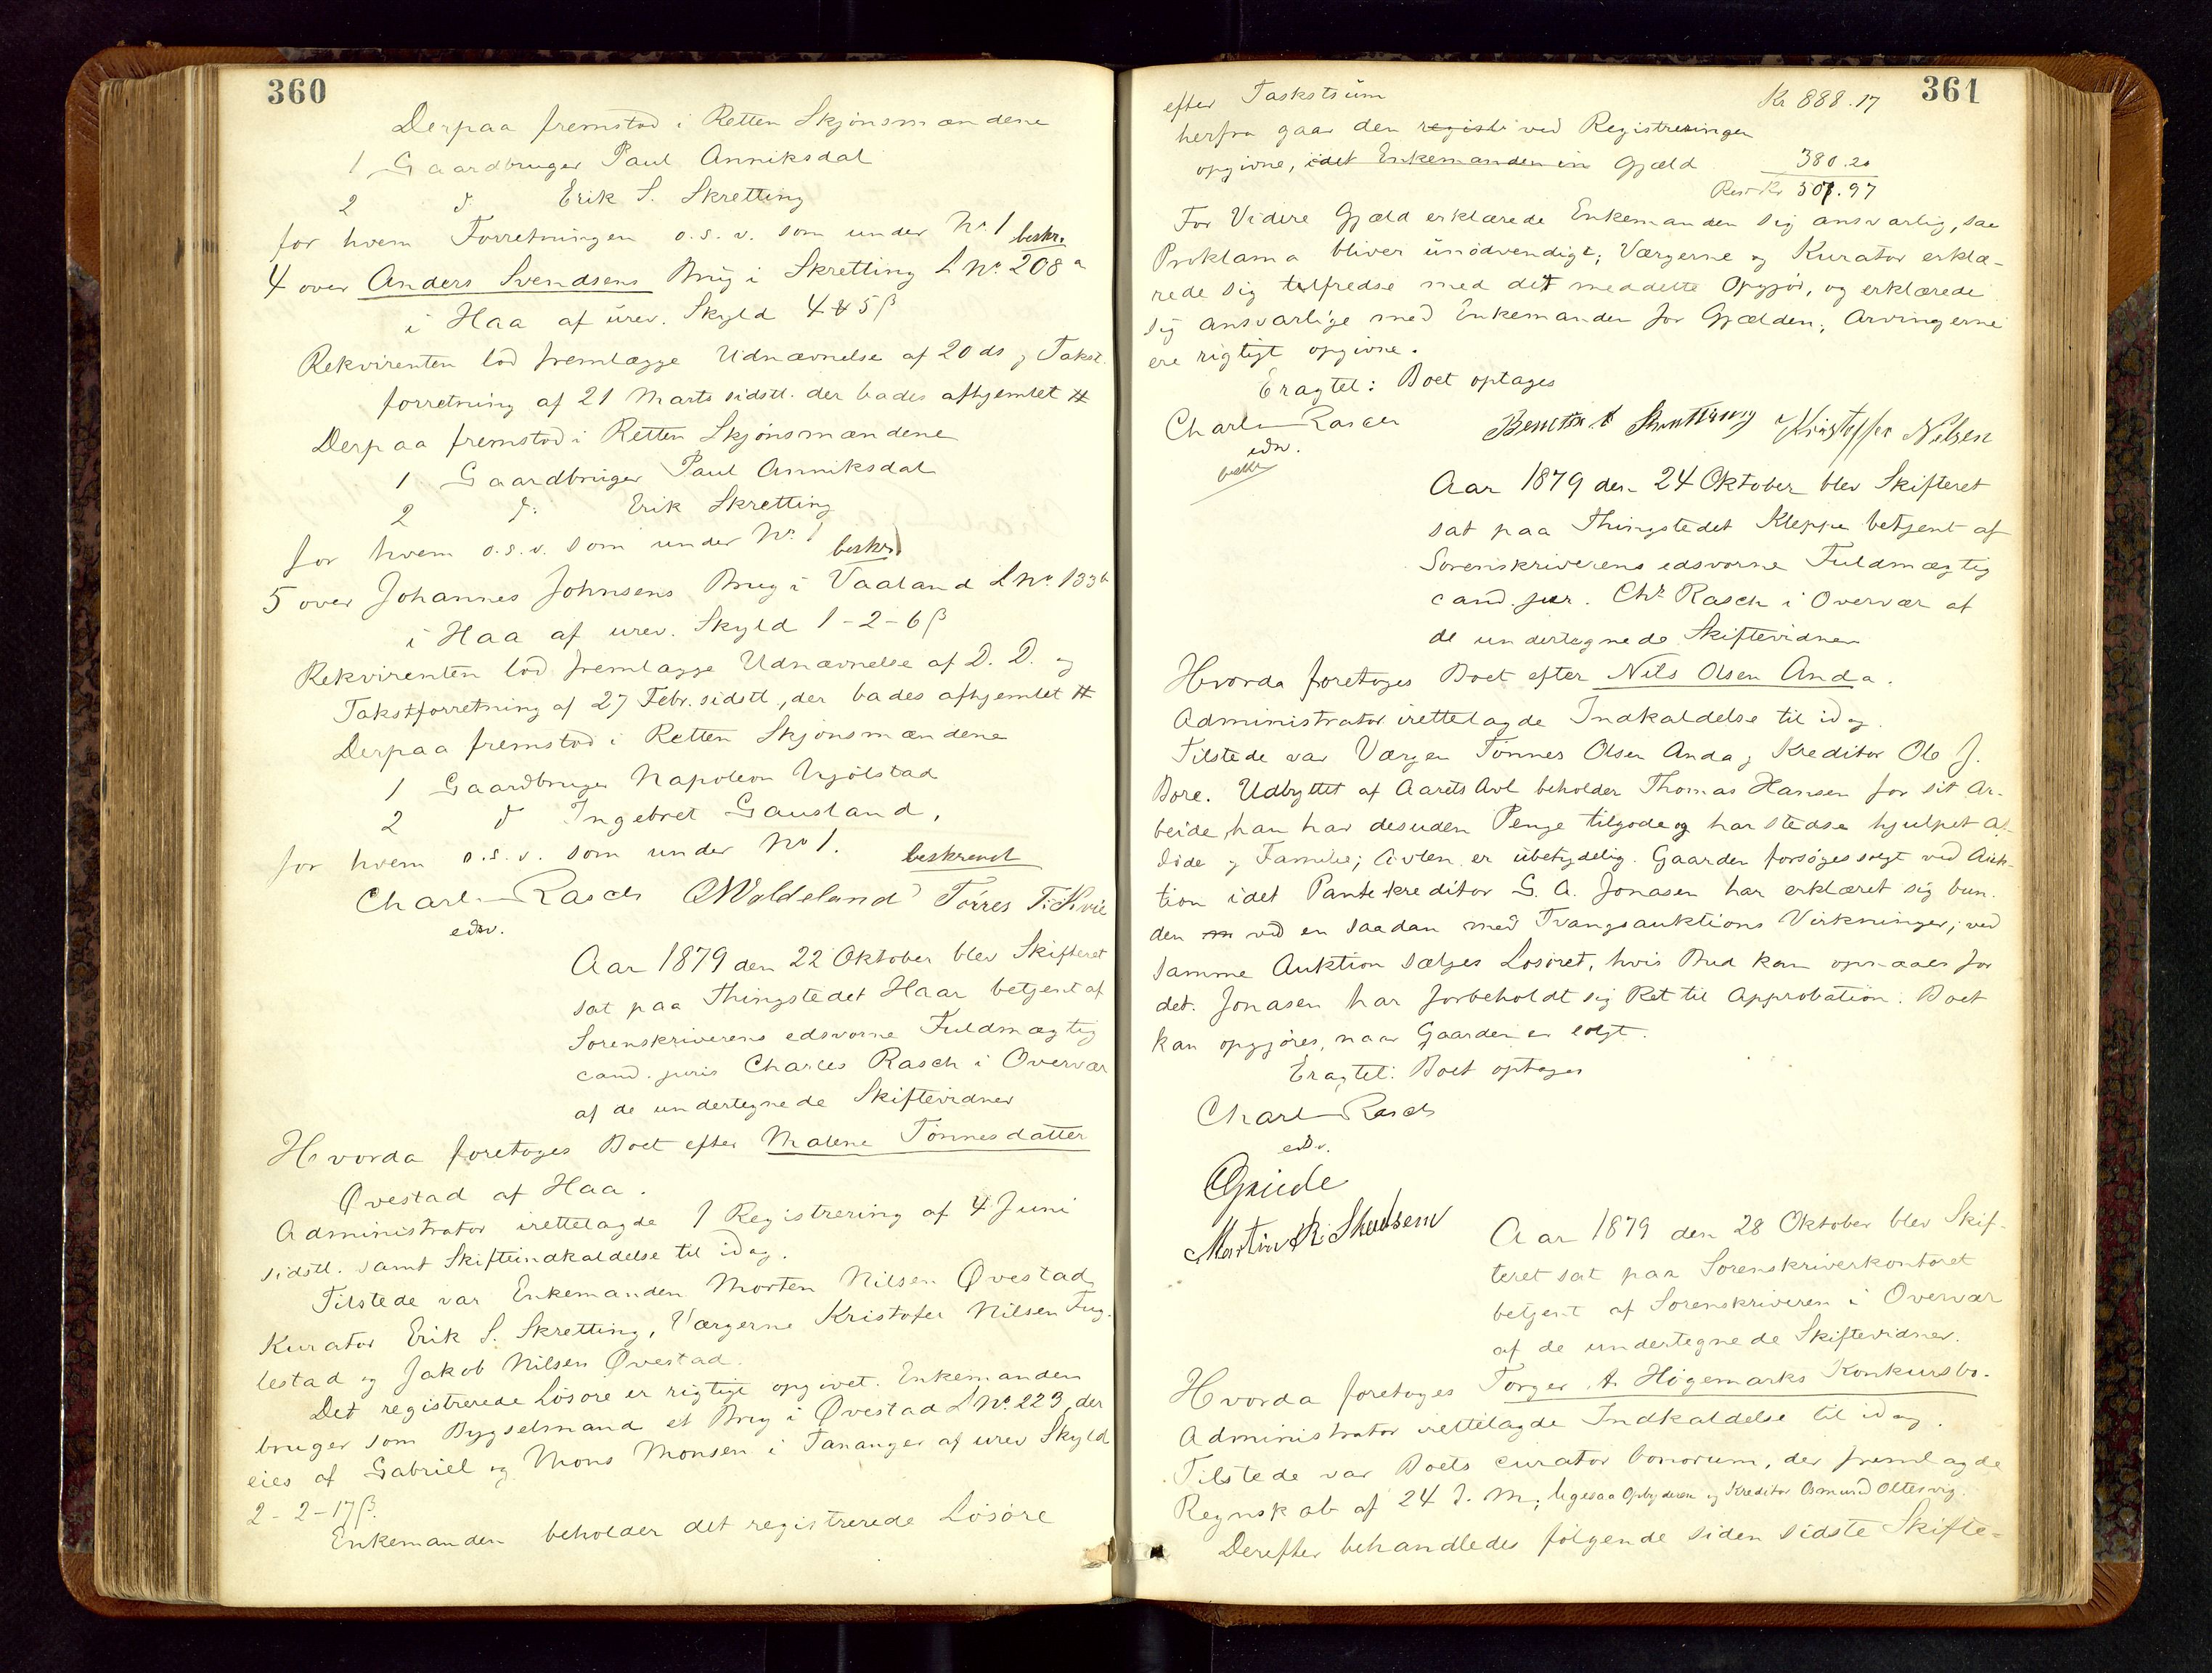 360
Derpaa fremstod i Retten Skjønsmændene
1 Gaardbruger Paul Anniksdal
2 d. Erik S. Skretting
for hvem Forretningen o.s.v. som under No 1 beskr.
4 over Anders Svendsens Brug i Skretting L No 208 a
i Haa af urev. Skyld 4 # 5 β
Rekvirenten lod fremlægge Udnævnelse af 20 ds og Takst
forretning af 21 Marts sidstl. der bades afhjemlet #
Derpaa fremstod i Retten Skjønsmændene
1 Gaardbruger Paul Anniksdal
2 d. Erik Skretting
for hvem o.s.v. som under No 1 beskr.
5 over Johannes Johnsens Brug i Vaaland L No 133 b
i Haa af urev. Skyld 1-2-6 β
Rekvirenten lod fremlagge Udnævnelse af D. D. og
Takstforretning af 27 Febr. sidstl, der bades afhjemlet #
Derpaa fremstod i Retten Skjønsmændene
1 Gaardbruger Napoleon Njølstad
2 d Ingebret Gausland,
for hvem o.s.v. som under No 1. beskrevet
Charles Rasch OWoldeland Tørres T. Kvie
edsv.
Aar 1879 den 22 Oktober blev Skifteret
sat paa Thingstedet Haar betjent af
Sorenskriverens edsvorne Fuldmægtig
cand. juris Charles Rasch i Overvær
af de undertegnede Skiftevidner
Hvorda foretoges Boet efter Malene Tønnesdatter
Øvestad af Haa.
Administrator irettelagde 1 Registrering af 4 Juni
sidstl. samt Skifteindkaldelse til idag.
Tilstede var Enkemanden Morten Nilsen Øvestad,
Kurator Erik S. Skretting, Værgerne Kristofer Nilsen Fug-
lestad og Jakob Nilsen Øvestad.
Det registrerede Løsøre er rigtigt opgivet. Enkemanden
bruger som Bygselmand et Brug i Øvestad L No 223, der
eies af Gabriel og Mons Monsen i Tananger af urev Skyld
2-2-17 β.
Enkemanden beholder det registrerede Løsøre
361
efter Taskstsum Kr 888.17
herfra gaar den registr ved Registreringen
opgivne, idet Enkemanden in Gjæld 380.20
Rest Kr 507.97
For Videre Gjæld erklærede Enkemanden sig ansvarlig, saa
Proklama bliver unødvendigt; Værgerne og Kurator erklæ-
rede sig tilfredse med det meddelte Opgjør, og erklærede
sig ansvarlige med Enkemanden for Gjælden; Arvingerne
ere rigtigt opgivne.
Eragtet: Boet optages
Charles Rasch Kristoffer Nilsen
edsv.
Aar 1879 den 24 Oktober blev Skifteret
sat paa Thingstedet Kleppe betjent af
Sorenskriverens edsvorne Fuldmægtig
cand. jur. Chs Rasch i Overvær af
de undertegnede Skiftevidner
Hvorda foretoges Boet efter Nils Olsen Anda.
Administrator irettelagde Indkaldelse til idag.
Tilstede var Værgen Tønnes Olsen Anda og Kreditor Ole J.
Bore. Udbyttet af Aarets Avl beholder Thomas Hansen for sit Ar-
beide, han har desuden Penge tilgode og har stedse hjulpet Af-
døde og Familie; Avlen er ubetydelig. Gaarden forsøges solgt ved Auk-
tion idet Pantekreditor G. A. Jonasen har erklæret sig bun-
den m ved en saadan med Tvangsauktions Virkninger; ved
samme Auktion sælges Løsøret, hvis Bud kan opnaaes for
det. Jonasen har forbeholdt sig Ret til Approbation. Boet
kan opgjøres, naar Gaarden er solgt.
Eragtet: Boet optages
Charles Rasch
edsv.
OGrude
Martin R. Skadsem
Aar 1879 den 28 Oktober blev Skif-
teret sat paa Sorenskriverkontoret
betjent af Sorenskriveren i Overvær
af de undertegnede Skiftevidner.
Hvorda foretoges Torger A. Høgemarks Konkursbo.
Administrator irettelagde Indkaldelse til idag.
Tilstede var Boets curator bonorum, der fremlagde
Regnskab af 24 d. M; ligesaa Opbyderen og Kreditor Osmund Ottesvig.
Derefter behandledes følgende siden sidste Skifte-